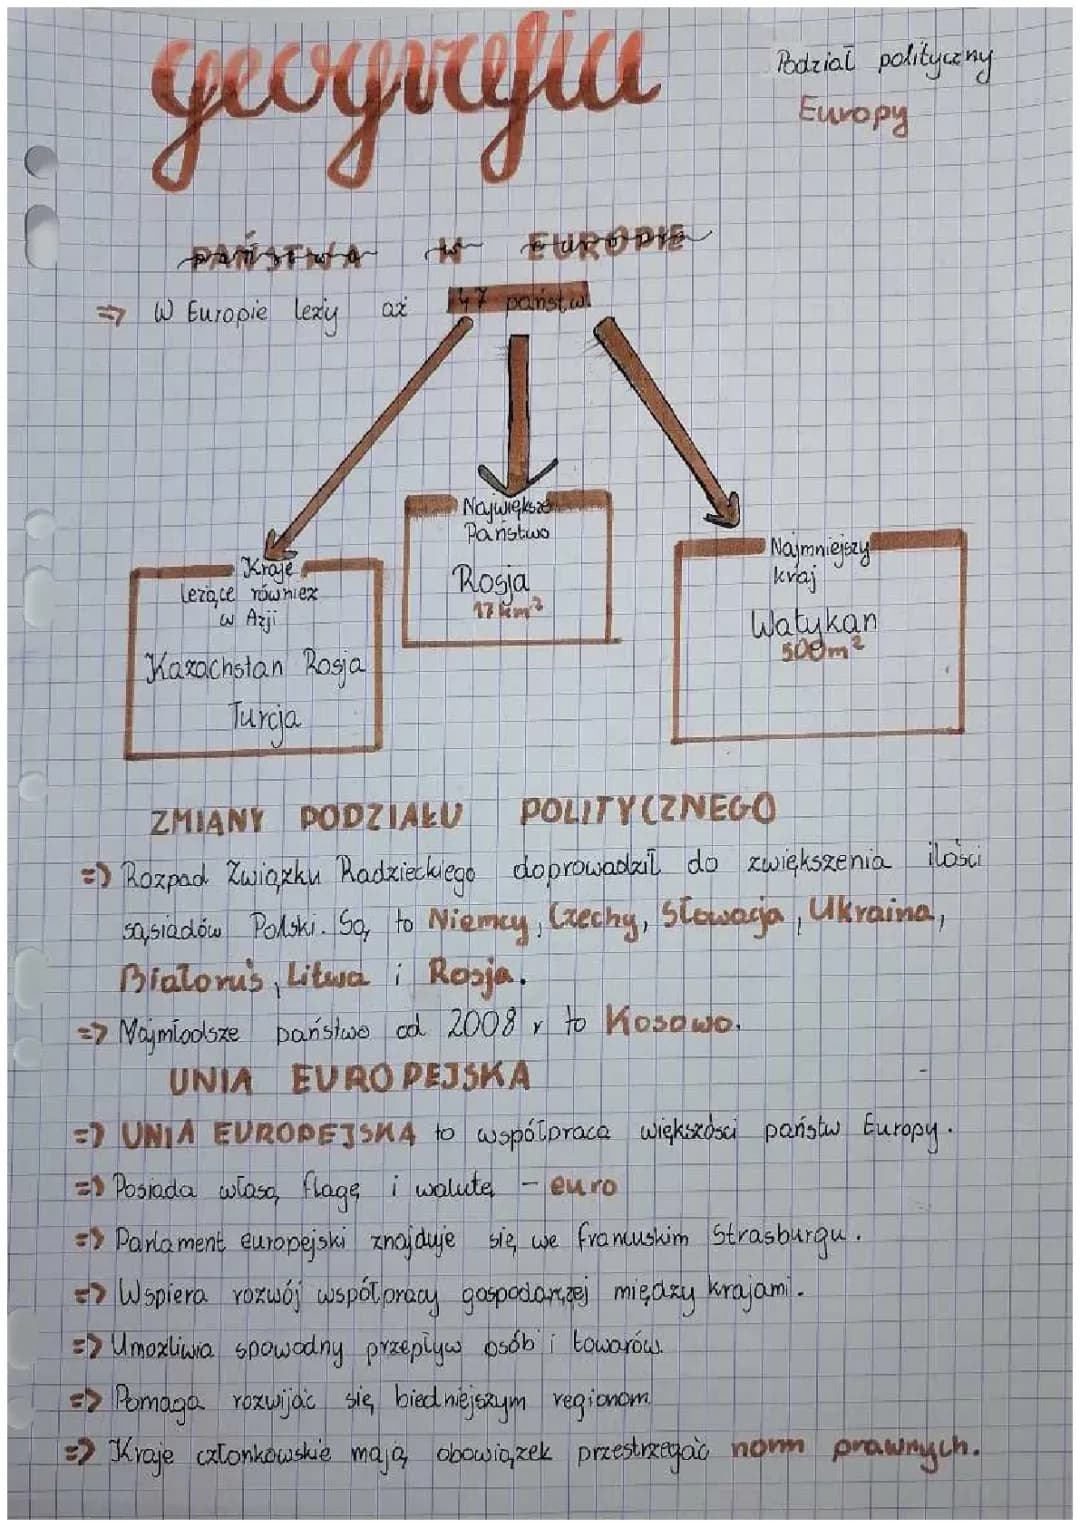 geografia
Podział polityczny
Europy
PAŃSTWA W EUROPIE
=> W Europie leży aż 47 państw
Największe
Państwo
Rosja
17 km²
Najmniejszy
kraj
Watykan
500m²
Kraje
leżące również
w Azji
Kazachstan Rosja
Turcja
ZMIANY PODZIAŁU POLITYCZNEGO
=> Rozpad Związku Radzieckiego doprowadził do zwiększenia ilości
sąsiadów Polski. Są to Niemcy, Czechy, Słowacja, Ukraina,
Białoruś, Litwa i Rosja.
=> Najmłodsze państwo od 2008 r to Kosowo.
UNIA EUROPEJSKA
=> UNIA EUROPEJSKA to współpraca większości państw Europy.
=> Posiada własą flagę i walutę - euro
=> Parlament europejski znajduje się we francuskim Strasburgu.
=> Wspiera rozwój współpracy gospodarczej między krajami.
=> Umożliwia spowodny przepływ osób i towarów.
=> Pomaga rozwijać się biedniejszym regionom
=> Kraje członkowskie mają obowiązek przestrzegać norm prawnych.